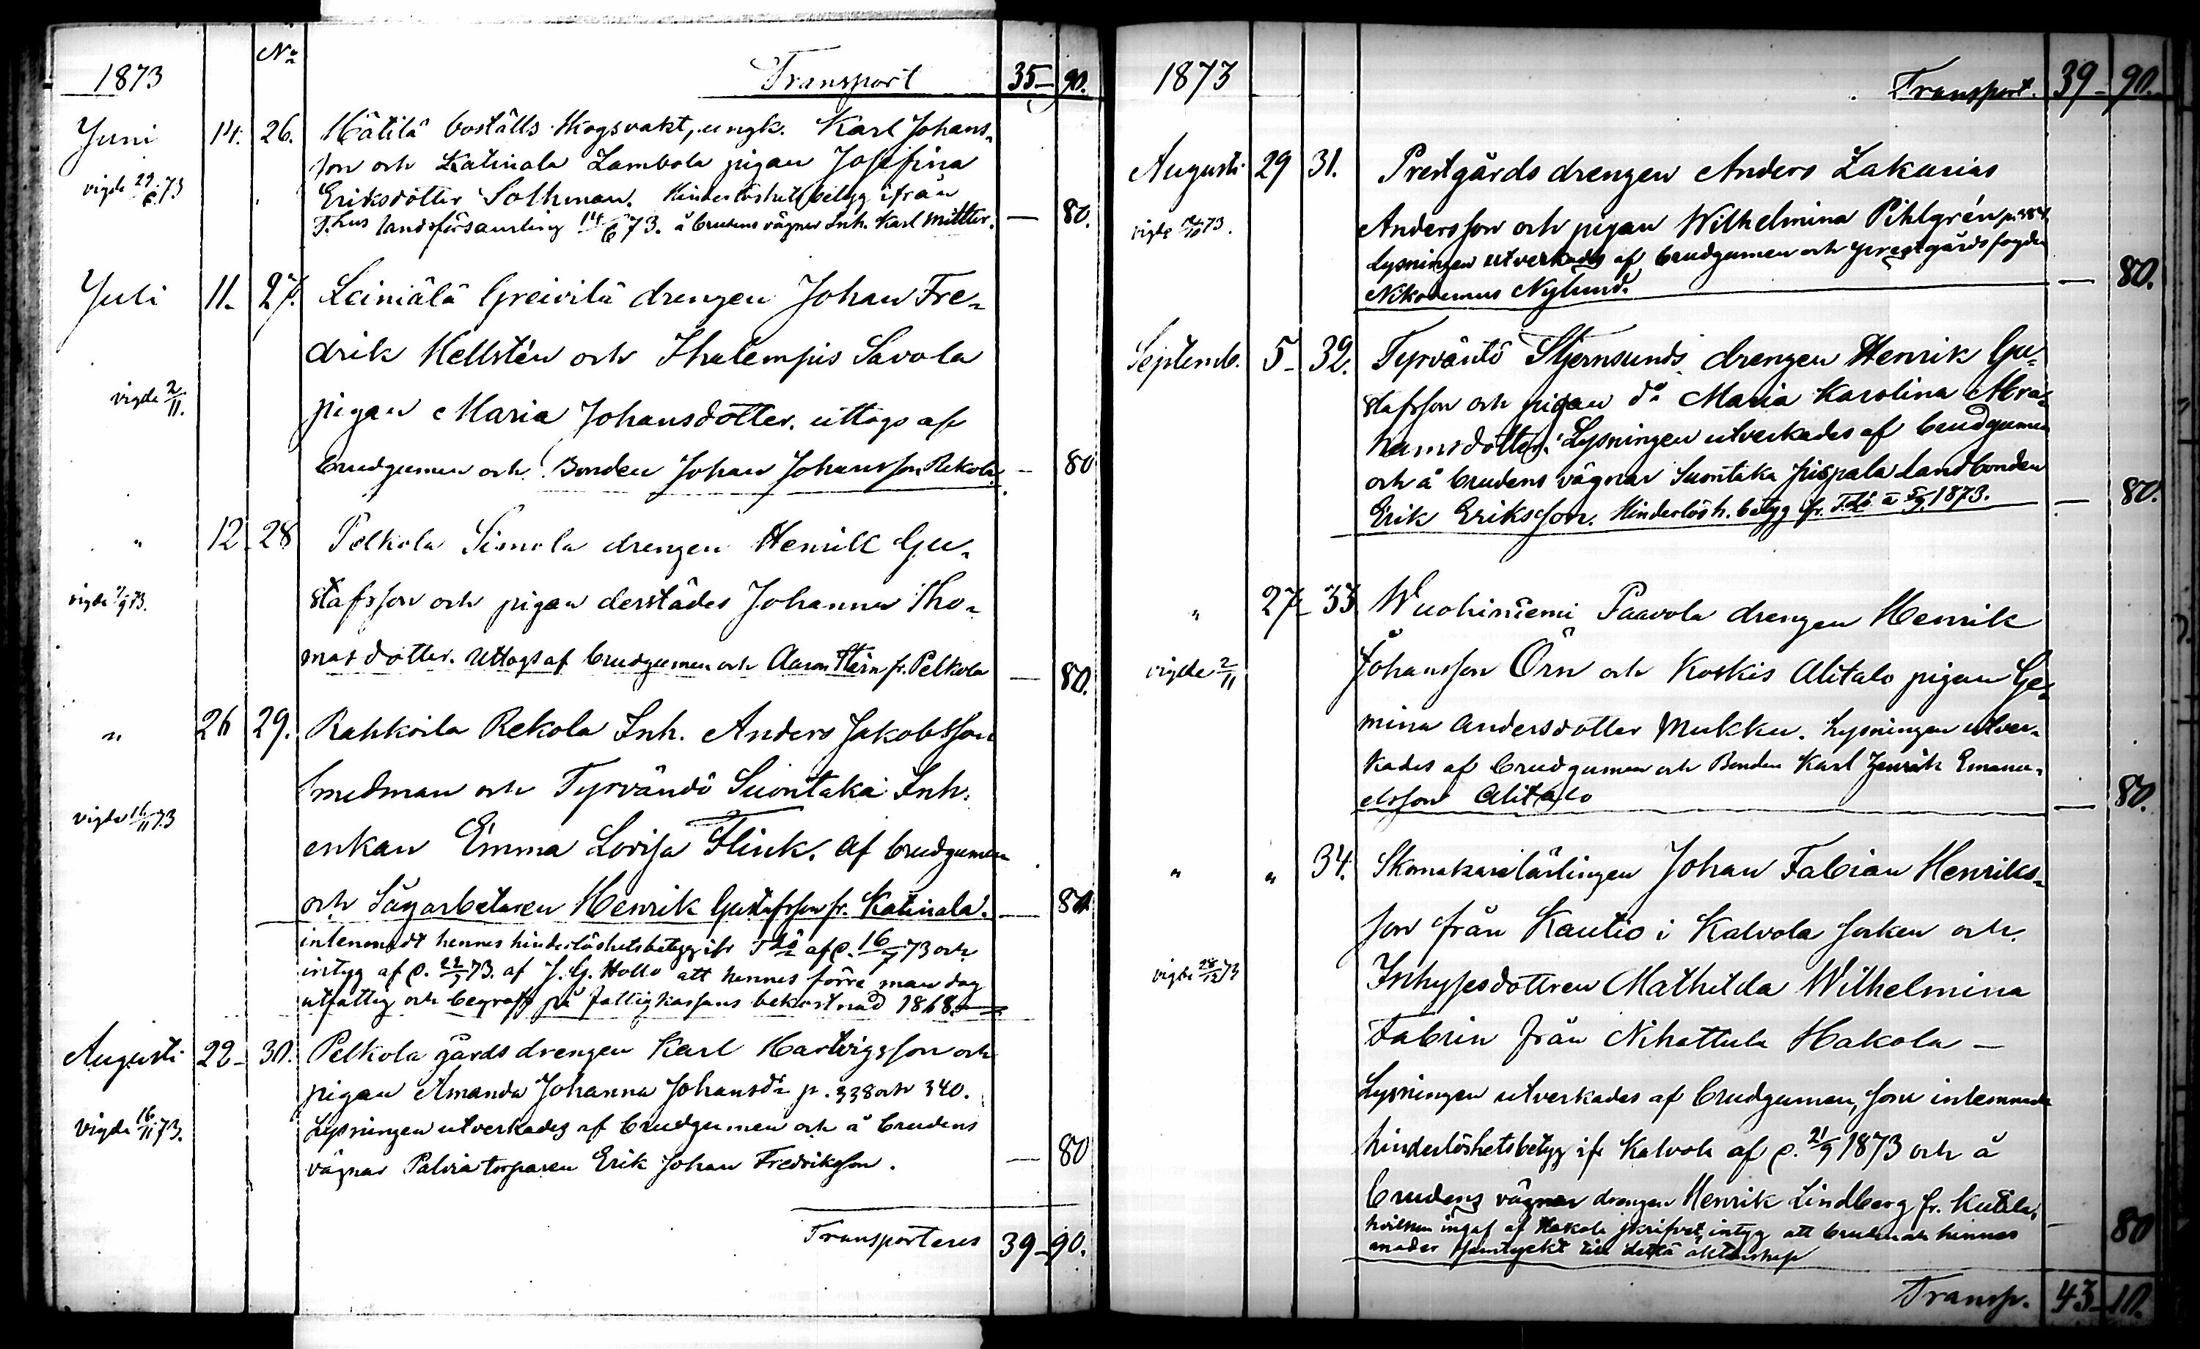 1873 No Transport 35 90.
Juni 14. 26. Hätilä boställs skogsvakt, ungk. Karl Johans-
son och Katinala Lambola pigan Josefina
vigde 29/6 73
Eriksdotter Sothman. Hinderlöshetsbetyg ifrån
T.hus landsförsamling 14/6 73. å brudens vägnar Inh. Karl — 80.
Juli 11. 27. Leiniälä Greivilä drengen Johan Fre-
drik Hellstén och Ihalempis Savola
vigde 2/11.
pigan Maria Johansdotter. uttogs af
brudgumen och Bonden Johan Johansson Rekola. — 80
" 12 28 Pelkola Simola drengen Henrik Gu-
vigde 7/9 73.
stafsson och pigan derstädes Johanna Tho-
masdotter. Uttogs af brudgumen och Aaron Stern fr. Pelkola — 80.
" 26 29. Rahkoila Rekola Inh. Anders Jakobsson
Smedman och Tyrvändö Suontaka Inh.
vigde 16/11 73
enkan Emma Lovisa Flink. af brudgumen
och Sågarbetaren Henrik Gustafsson fr. Katinala. — 80
hennes hinderlöshetsbetyg ifr Tdö af d. 16/7 73 och
intyg af d. 22/7 73. af J. G. Hollo att hennes förre man dog
utfattig och begrafts på fattigkassans bekostnad 1868.
Augusti 22 30. Pelkola gårds drengen Karl Hartvigsson och
pigan Amanda Johanna Johansdr p. 338 och 340.
vigde 16/11 73.
Lysningen utverkades af brudgumen och å brudens
vägnar Palvia torparen Erik Johan Fredriksson. — 80
Transporteres 39 90.
1873 Transport. 39 90.
Augusti 29 31. Prestgårds drengen Anders Zakarias
vigde 73.
Andersson och pigan Wilhelmina Pihlgrén
Lysningen utverkades af brudgumen och prestgårdsfogden
Nikodemus Nylund. — 80.
Septemb. 5 32. Tyrväntö Stjernsunds drengen Henrik Gu-
stafsson och pigan do Maria Karolina Abra-
hamsdotter. Lysningen utverkades af brudgumen
och å brudens vägnar Suontaka Pispala landbonden
Erik Eriksson. Hinderlösh. betyg fr. Tdö a 5/9 1873. — 80.
" 27 33 Wuohiniemi Paavola drengen Henrik
Johansson Örn och Koskis Alitalo pigan Ge-
vigde 2/11
mina Andersdotter Mukku. Lysningen utver-
kades af brudgumen och Bonden Karl Henrik Emanu-
elsson Alitalo — 80.
" " 34. Skomakarelärlingen Johan Fabian Henriks-
son från Kautio i Kalvola socken och
vigde 28/12 73
Inhysesdottren Mathilda Wilhelmina
Fabrin från Nihattula Hakola —
Lysningen utverkades af brudgumen, som inlemnade
hinderlöshetsbetyg ifr Kalvola af d. 21/9 1873 och å
brudens vägnar drengen Henrik Lindberg fr. Kutila,
hvilken ingaf af Hakola skrifvet intyg att brudens hennes
moder samtyckt till detta äktenskap — 80
Transp. 43 10.